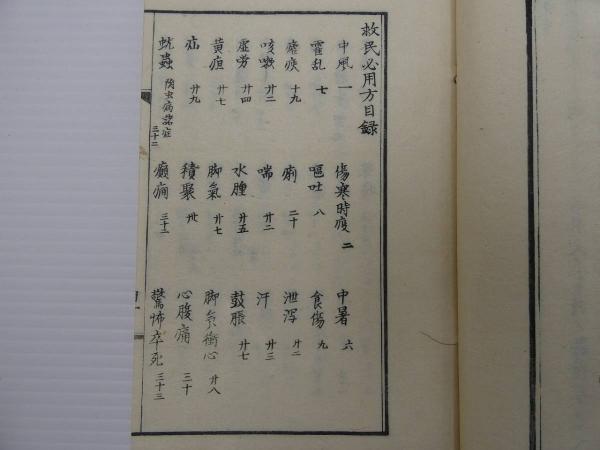 救民必用方目録
中風 一 傷寒時疫 二 中暑 六
霍乱 七 嘔吐 八 食傷 九
瘧疾 十九 痢 二十 泄泻 廿二
咳嗽 廿二 喘 廿二 汗 廿三
虚労 廿四 水腫 廿五 鼓脹 廿七
黄疸 廿七 脚氣 廿七 脚氣衝心 廿八
疝 廿九 積聚 卅 心腹痛 三十
蚘蟲 附虫病諸症 三十二 癲癇 三十三 驚怖卒死 三十三